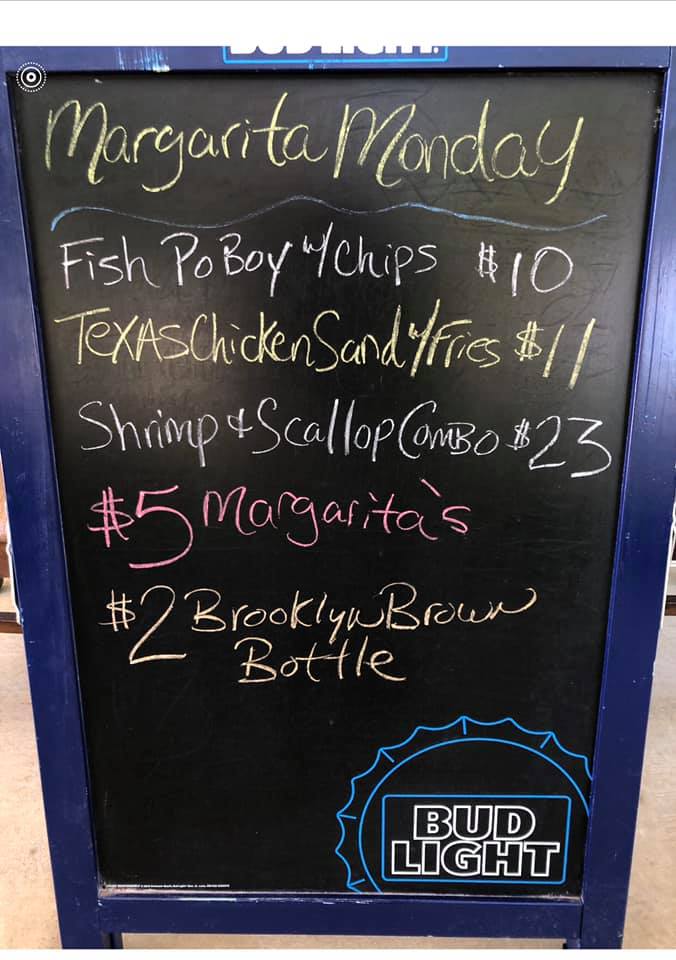 BUD LIGHT.
Margarita Monday
Fish Po Boy w/ Chips $10
TEXAS Chicken Sand w/ Fries $11
Shrimp & Scallop ComBo $23
$5 Margarita's
$2 Brooklyn Brown
Bottle
BUD
LIGHT